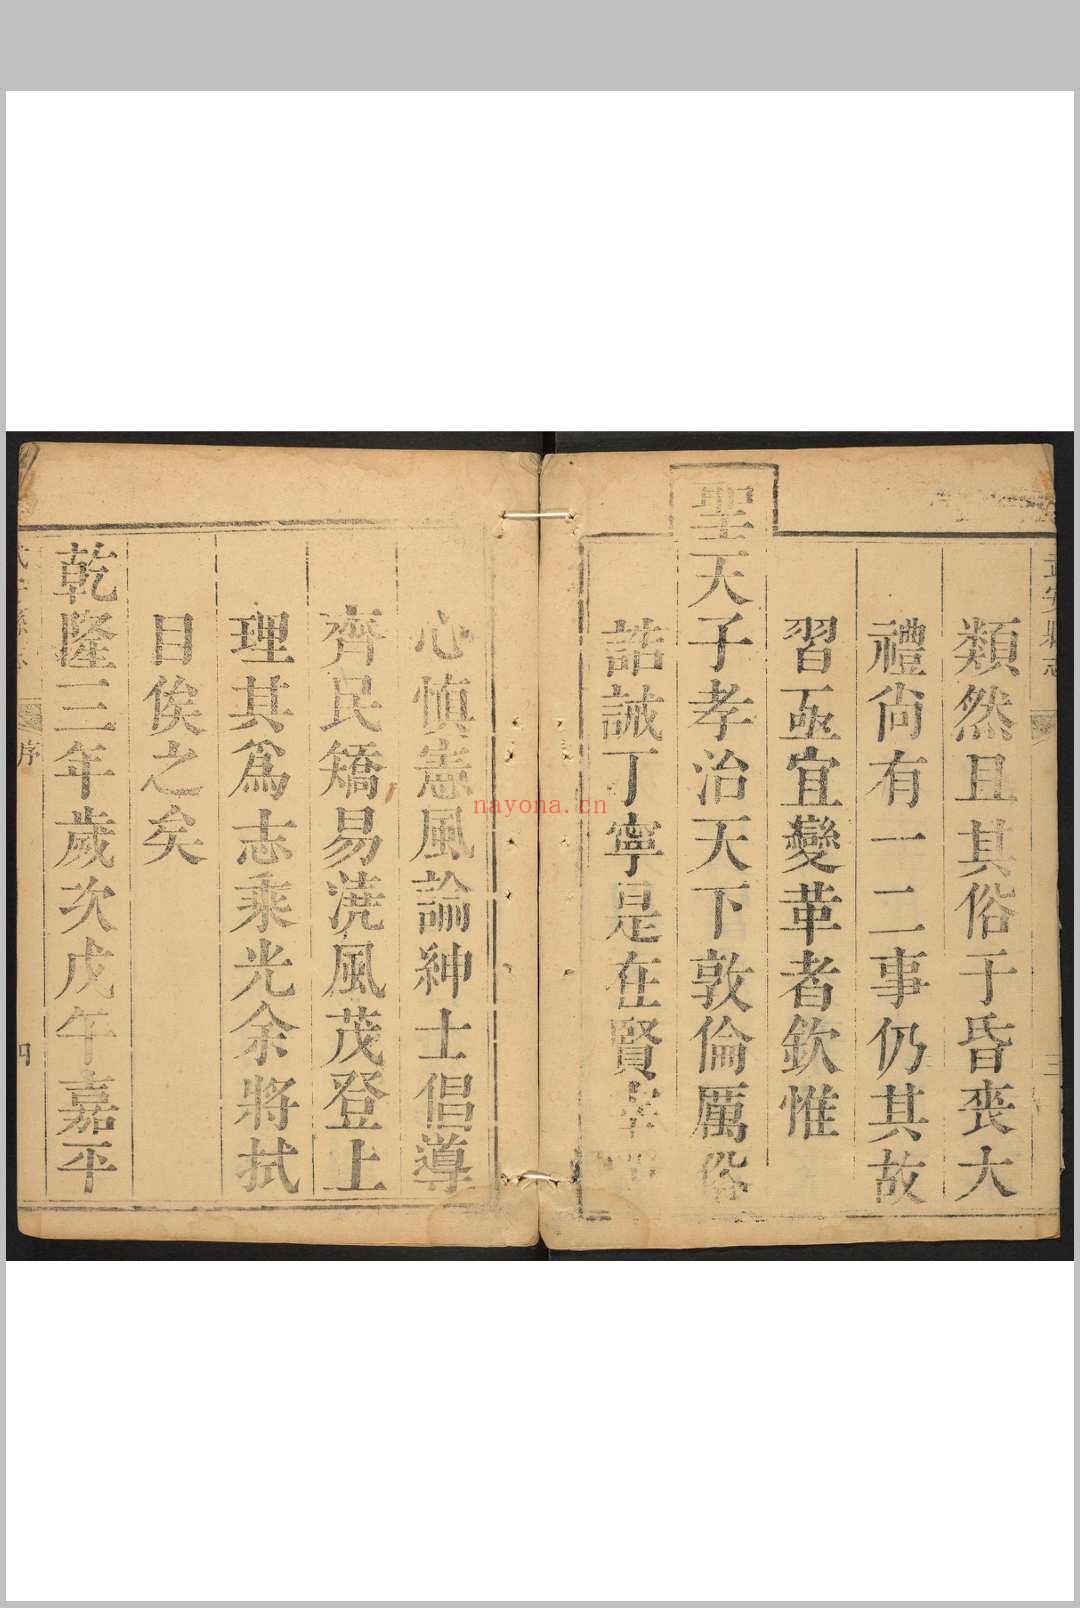 武安縣志
類然且其俗于昏喪大
禮尙有一二事仍其故
習亟宜變革者欽惟
聖天子孝治天下敦倫厲俗
誥誡丁寧是在賢宰
心慎憲風論紳士倡導
齊民矯易澆風茂登上
理其爲志乘光余將拭
目俟之矣
乾隆三年歲次戊午嘉平
序
四
nayona.cn